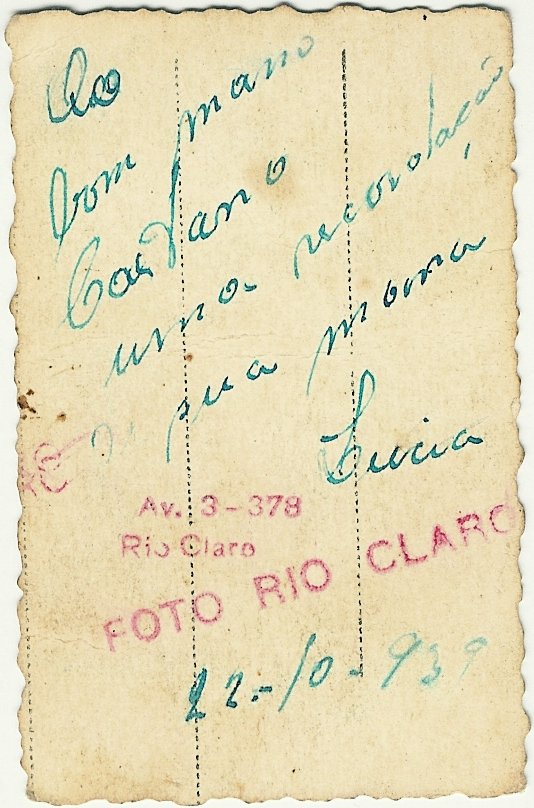 Ao
bom mano
Caetano
uma recordação
de sua mana
Lucia
Av. 3-378
Rio Claro
FOTO RIO CLARO
22-10-939